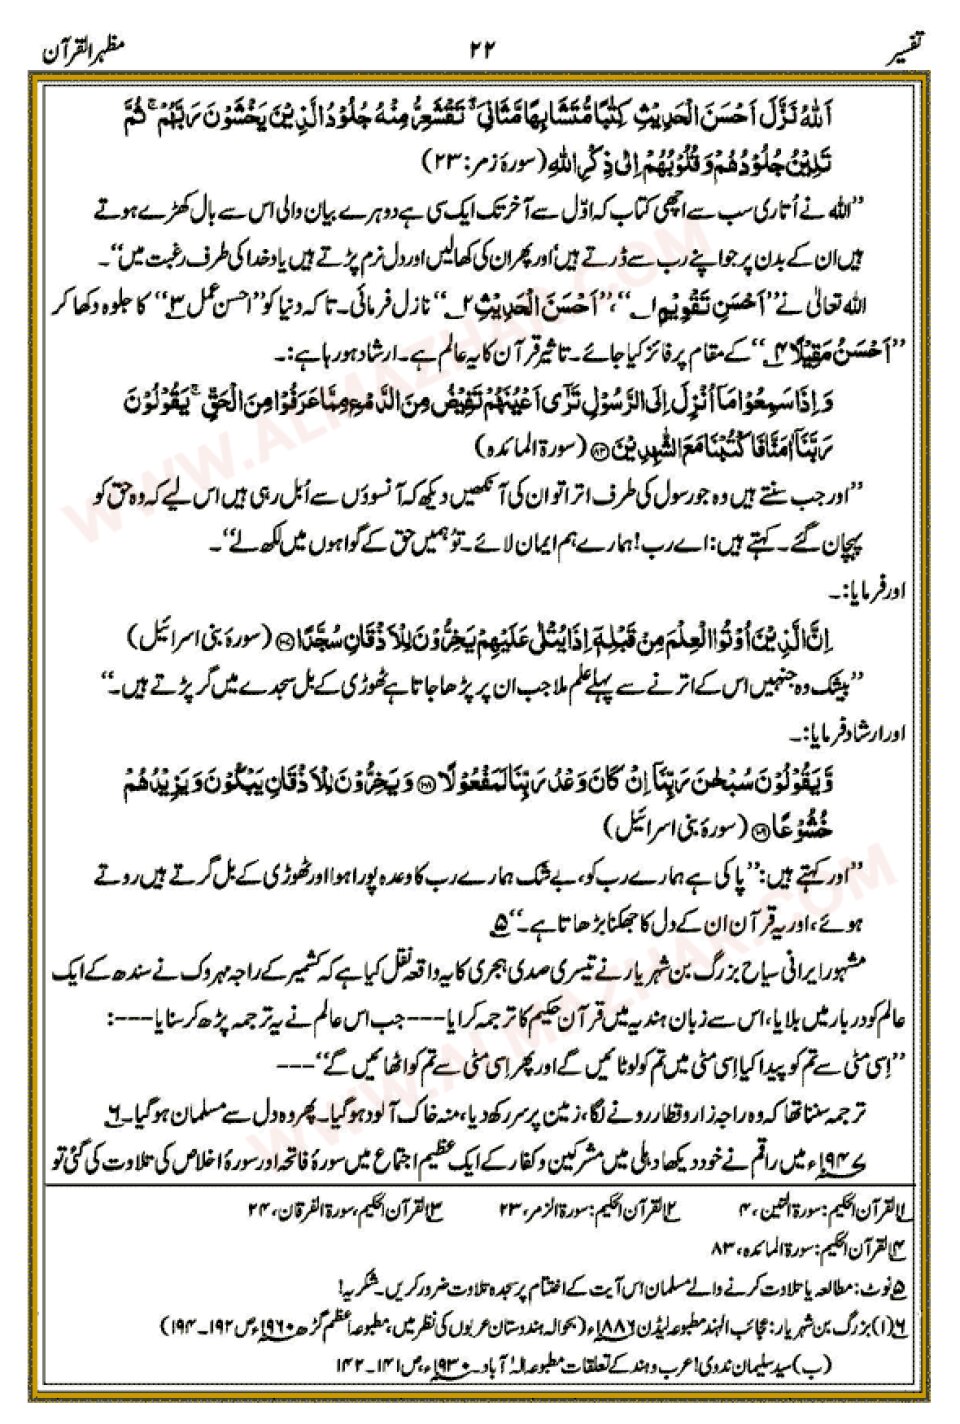 تفسیر ۲۲ مظہر القرآن
اَللّٰهُ نَزَّلَ اَحْسَنَ الْحَدِیْثِ كِتٰبًا مُّتَشَابِهًا مَّثَانِیَ ۖۗ تَقْشَعِرُّ مِنْهُ جُلُوْدُ الَّذِیْنَ یَخْشَوْنَ رَبَّهُمْ ۚ ثُمَّ
تَلِیْنُ جُلُوْدُهُمْ وَ قُلُوْبُهُمْ اِلٰى ذِكْرِ اللّٰهِ (سورۂ زمر: ۲۳)
’’اللہ نے اُتاری سب سے اچھی کتاب کہ اوّل سے آخر تک ایک سی ہے دوہرے بیان والی اس سے بال کھڑے ہوتے
ہیں ان کے بدن پر جو اپنے رب سے ڈرتے ہیں اور پھر ان کی کھالیں اور دل نرم پڑتے ہیں یاد خدا کی طرف رغبت میں‘‘۔
اللہ تعالیٰ نے ’’اَحْسَنِ تَقْوِیْمٍ ۱‘‘، ’’اَحْسَنَ الْحَدِیْثِ ۲‘‘ نازل فرمائی۔ تاکہ دنیا کو ’’احسن عمل ۳‘‘ کا جلوہ دکھا کر
’’اَحْسَنُ مَقِیْلًا ۴‘‘ کے مقام پر فائز کیا جائے۔ تاثیر قرآن کا یہ عالم ہے۔ ارشاد ہو رہا ہے:۔
وَ اِذَا سَمِعُوْا مَاۤ اُنْزِلَ اِلَى الرَّسُوْلِ تَرٰۤى اَعْیُنَهُمْ تَفِیْضُ مِنَ الدَّمْعِ مِمَّا عَرَفُوْا مِنَ الْحَقِّ ۚ یَقُوْلُوْنَ
رَبَّنَاۤ اٰمَنَّا فَاكْتُبْنَا مَعَ الشّٰهِدِیْنَ ﴿۸۳﴾ (سورۃ المائدہ)
’’اور جب سنتے ہیں وہ جو رسول کی طرف اترا تو ان کی آنکھیں دیکھ کہ آنسوؤں سے اُبل رہی ہیں اس لیے کہ وہ حق کو
پہچان گئے۔ کہتے ہیں: اے رب! ہمارے ہم ایمان لائے۔ تُو ہمیں حق کے گواہوں میں لکھ لے‘‘۔
اور فرمایا:۔
اِنَّ الَّذِیْنَ اُوْتُوا الْعِلْمَ مِنْ قَبْلِهٖۤ اِذَا یُتْلٰى عَلَیْهِمْ یَخِرُّوْنَ لِلْاَذْقَانِ سُجَّدًا ﴿۱۰۷﴾ (سورۂ بنی اسرائیل)
’’بیشک وہ جنہیں اس کے اترنے سے پہلے علم ملا جب ان پر پڑھا جاتا ہے ٹھوڑی کے بل سجدے میں گر پڑتے ہیں۔‘‘
اور ارشاد فرمایا:۔
وَّ یَقُوْلُوْنَ سُبْحٰنَ رَبِّنَاۤ اِنْ كَانَ وَعْدُ رَبِّنَا لَمَفْعُوْلًا ﴿۱۰۸﴾ وَ یَخِرُّوْنَ لِلْاَذْقَانِ یَبْكُوْنَ وَ یَزِیْدُهُمْ
خُشُوْعًا ﴿۱۰۹﴾ (سورۂ بنی اسرائیل)
’’اور کہتے ہیں: ’’پاکی ہے ہمارے رب کو، بے شک ہمارے رب کا وعدہ پورا ہوا اور ٹھوڑی کے بل گرتے ہیں روتے
ہوئے، اور یہ قرآن ان کے دل کا جھکنا بڑھاتا ہے۔‘‘ ۵
مشہور ایرانی سیاح بزرگ بن شہریار نے تیسری صدی ہجری کا یہ واقعہ نقل کیا ہے کہ کشمیر کے راجہ مہروک نے سندھ کے ایک
عالم کو دربار میں بلایا، اس سے زبان ہندیہ میں قرآن حکیم کا ترجمہ کرایا---- جب اس عالم نے یہ ترجمہ پڑھ کر سنایا---:
’’اِسی مٹی سے تم کو پیدا کیا اِسی مٹی میں تم کو لوٹائیں گے اور پھر اِسی مٹی سے تم کو اٹھائیں گے‘‘---
ترجمہ سننا تھا کہ وہ راجہ زار و قطار رونے لگا، زمین پر سر رکھ دیا، منہ خاک آلود ہو گیا۔ پھر وہ دل سے مسلمان ہو گیا۔ ۶
۱۹۴۷ء میں راقم نے خود دیکھا دہلی میں مشرکین و کفار کے ایک عظیم اجتماع میں سورۂ فاتحہ اور سورۂ اخلاص کی تلاوت کی گئی تو
۱ القرآن الحکیم: سورۃ التین، ۴ ۲ القرآن الحکیم: سورۃ الزمر، ۲۳ ۳ القرآن الحکیم، سورۃ الفرقان، ۲۴
۴ القرآن الحکیم: سورۃ المائدہ، ۸۳
۵ نوٹ: مطالعہ یا تلاوت کرنے والے مسلمان اس آیت کے اختتام پر سجدہ تلاوت ضرور کریں۔ شکریہ!
۶ (ا) بزرگ بن شہریار: عجائب الہند مطبوعہ لیڈن ۱۸۸۶ء (بحوالہ ہندوستان عربوں کی نظر میں، مطبوعہ اعظم گڑھ ۱۹۶۰ء ص ۱۹۲۔۱۹۴)
(ب) سید سلیمان ندوی! عرب و ہند کے تعلقات مطبوعہ الٰہ آباد۔ ۱۹۳۰ء، ص ۱۴۱۔۱۴۲
WWW.ALMAZHAR.COM
WWW.ALMAZHAR.COM